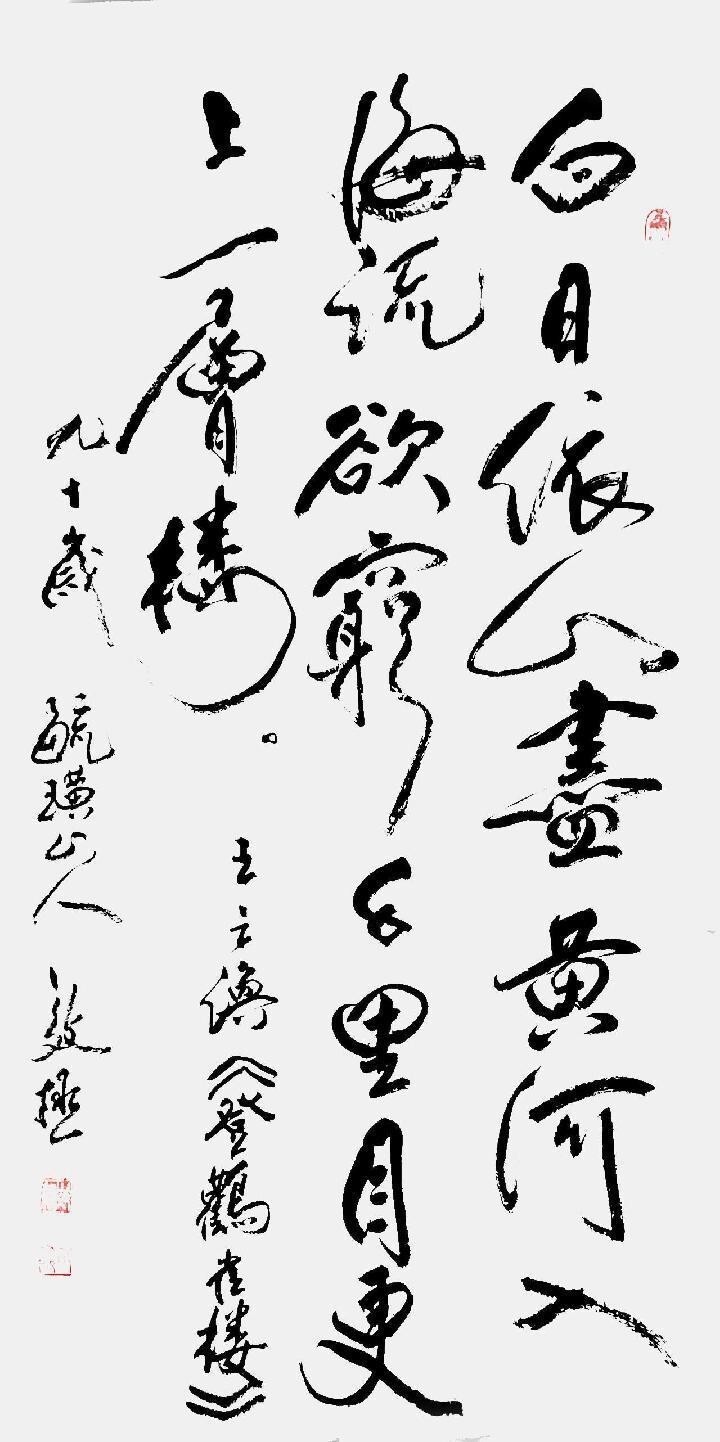 白日依山盡黄河入
海流欲窮千里目更
上一層樓。
王之渙《登鸛雀楼》
九十歲 毓璜山人